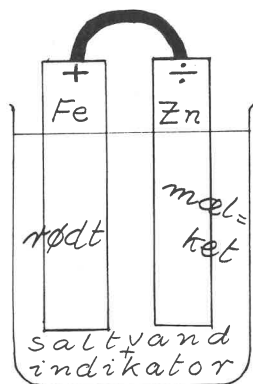 + ÷
Fe Zn
rødt
mæl=
ket
saltvand
+
indikator